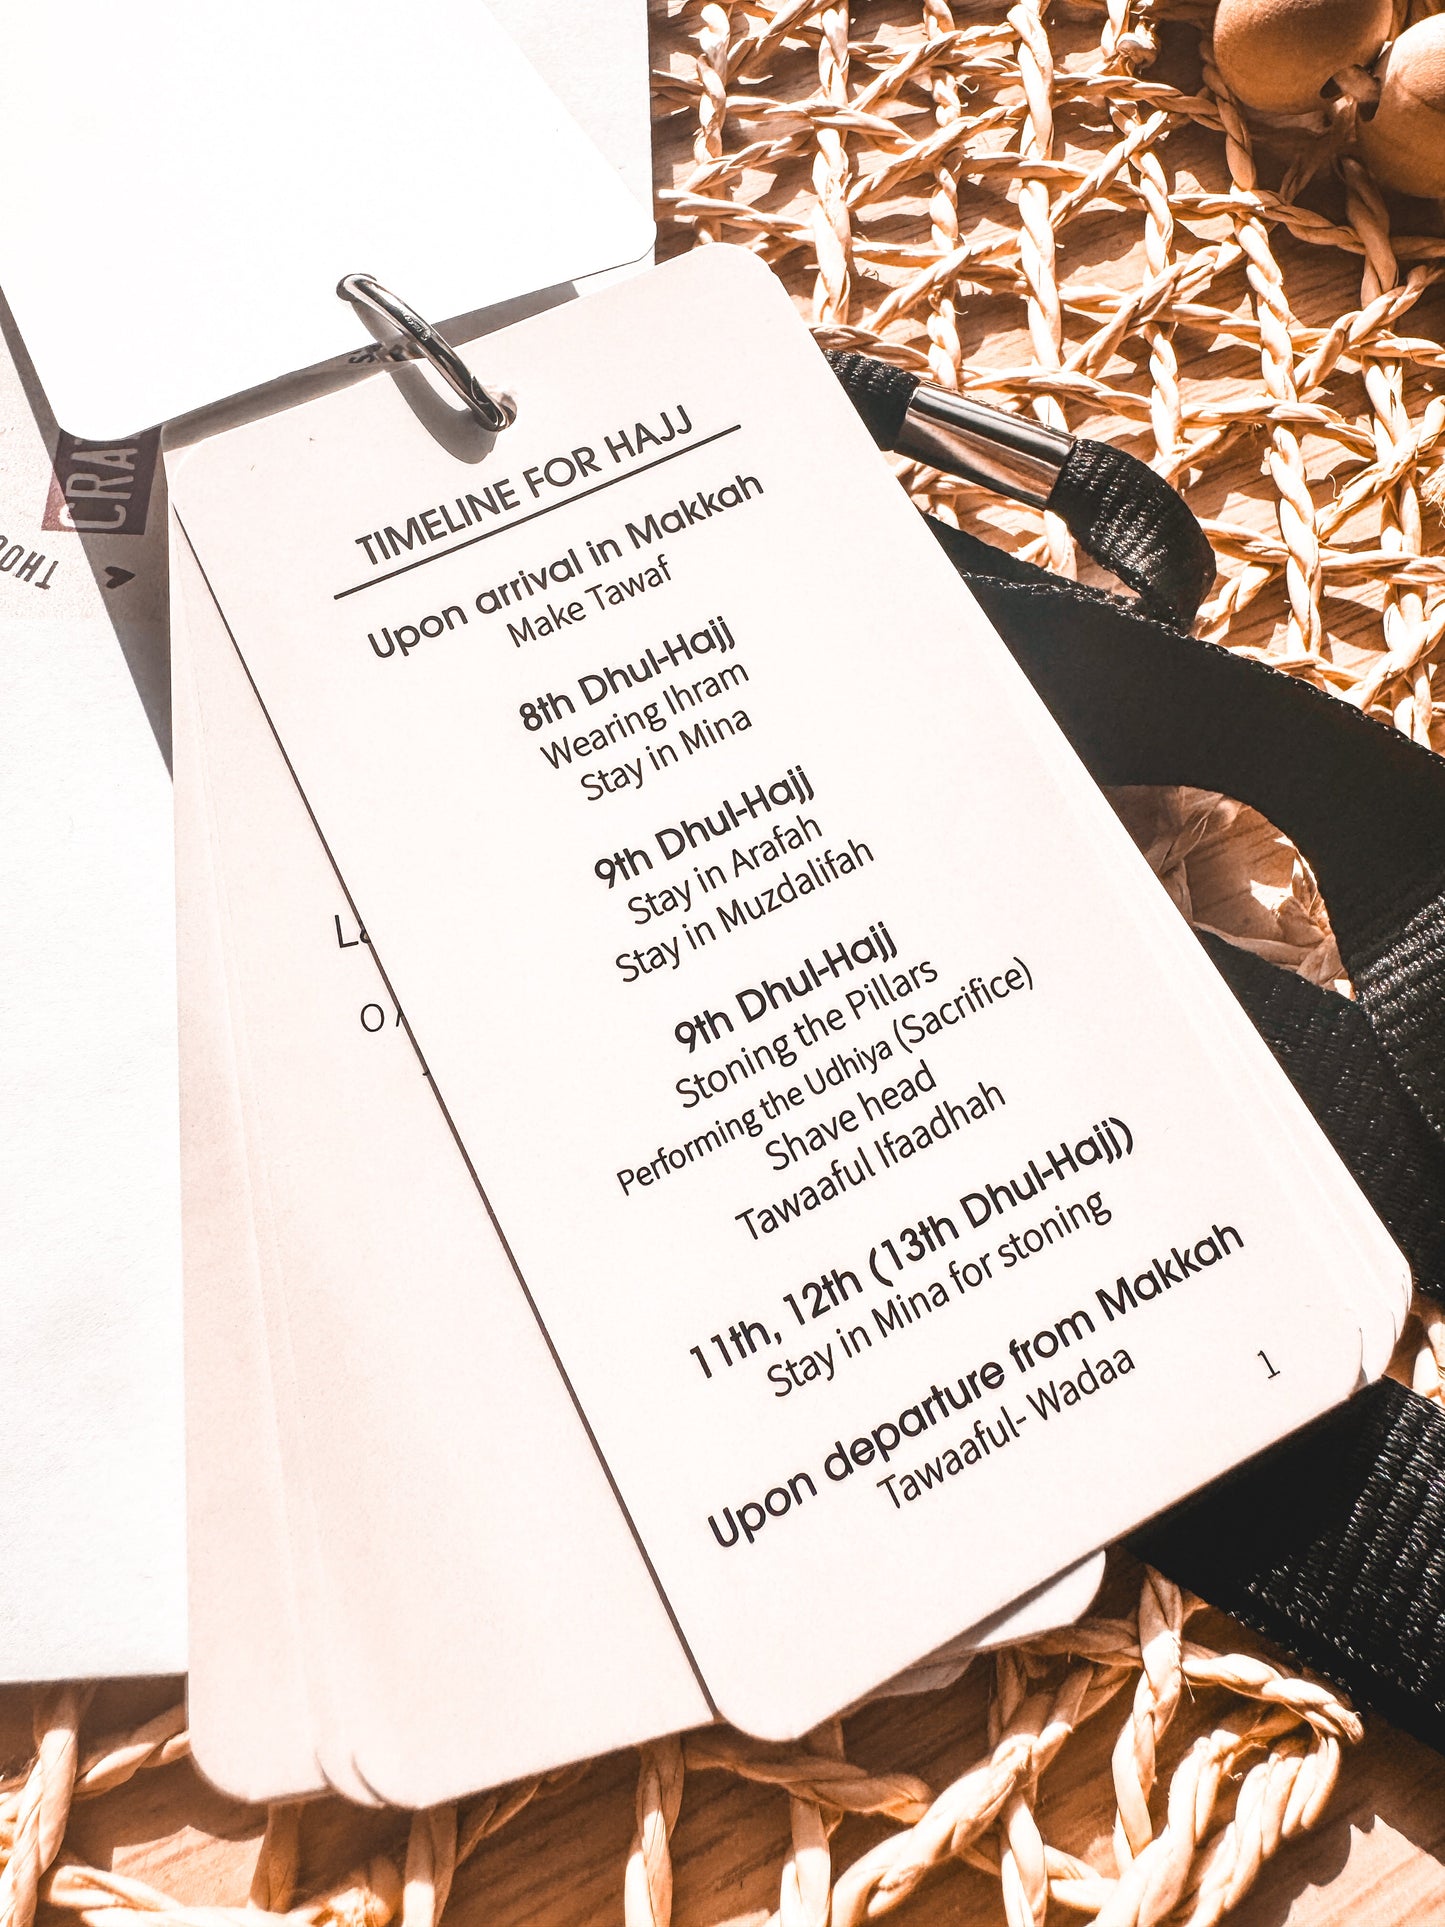 TIMELINE FOR HAJJ
Upon arrival in Makkah
Make Tawaf
8th Dhul-Hajj
Wearing Ihram
Stay in Mina
9th Dhul-Hajj
Stay in Arafah
Stay in Muzdalifah
9th Dhul-Hajj
Stoning the Pillars
Performing the Udhiya (Sacrifice)
Shave head
Tawaaful Ifaadhah
11th, 12th (13th Dhul-Hajj)
Stay in Mina for stoning
Upon departure from Makkah
Tawaaful- Wadaa
1